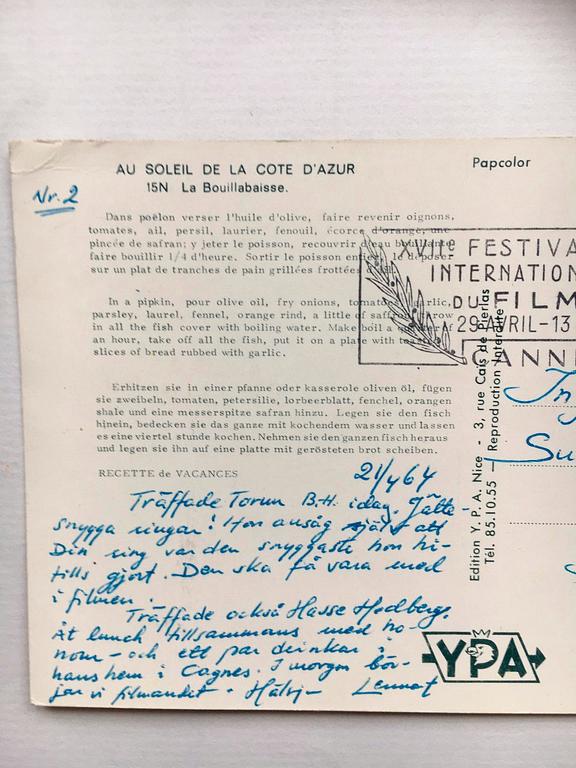 AU SOLEIL DE LA COTE D'AZUR
15N La Bouillabaisse.
Papcolor
Nr. 2
Dans poëlon verser l'huile d'olive, faire revenir oignons,
tomates, ail, persil, laurier, fenouil, écorce d'orange, une
pincée de safran; y jeter le poisson, recouvrir d'eau bouillante
faire bouillir 1/4 d'heure. Sortir le poisson entier, le déposer
sur un plat de tranches de pain grillées frottées
In a pipkin, pour olive oil, fry onions, tomatoes, garlic,
parsley, laurel, fennel, orange rind, a little of saffron, throw
in all the fish cover with boiling water. Make boil a quarter of
an hour, take off all the fish, put it on a plate with toasted
slices of bread rubbed with garlic.
Erhitzen sie in einer pfanne oder kasserole oliven öl, fügen
sie zweibeln, tomaten, petersilie, lorbeerblatt, fenchel, orangen
shale und eine messerspitze safran hinzu. Legen sie den fisch
hinein, bedecken sie das ganze mit kochendem wasser und lassen
es eine viertel stunde kochen. Nehmen sie den ganzen fisch heraus
und legen sie ihn auf eine platte mit gerösteten brot scheiben.
RECETTE de VACANCES
XVIIe FESTIVA
INTERNATION
DU FILM
29 AVRIL-13
CANN
Edition Y. P. A. Nice - 3, rue Cais de Pierlas
Tél. 85.10.55 — Reproduction interdite
In
Su
21/4 64
Träffade Torun B.H. idag. Jätte
snygga ringar! Hon ansåg själv att
Din ring var den snyggaste hon hi-
tills gjort. Den ska få vara med
i filmen.
Träffade också Hasse Hodberg.
Åt lunch tillsammans med ho-
nom - och ett par drinkar i
hans hem i Cagnes. I morgon bör-
jar vi filmandet. Lennart
YPA